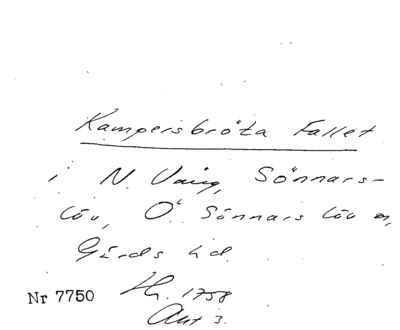 Kampersbröta Fallet
i N. Vång, Sönnars-
löv, Ö. Sönnarslöv sn,
Gärds hd.
Nr 7750 Hh. 1758
Akt 3.